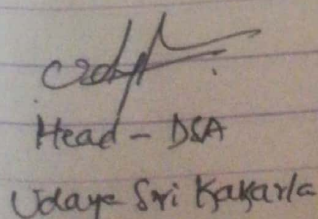 Head - DSA
Udaya Sri Kakarla